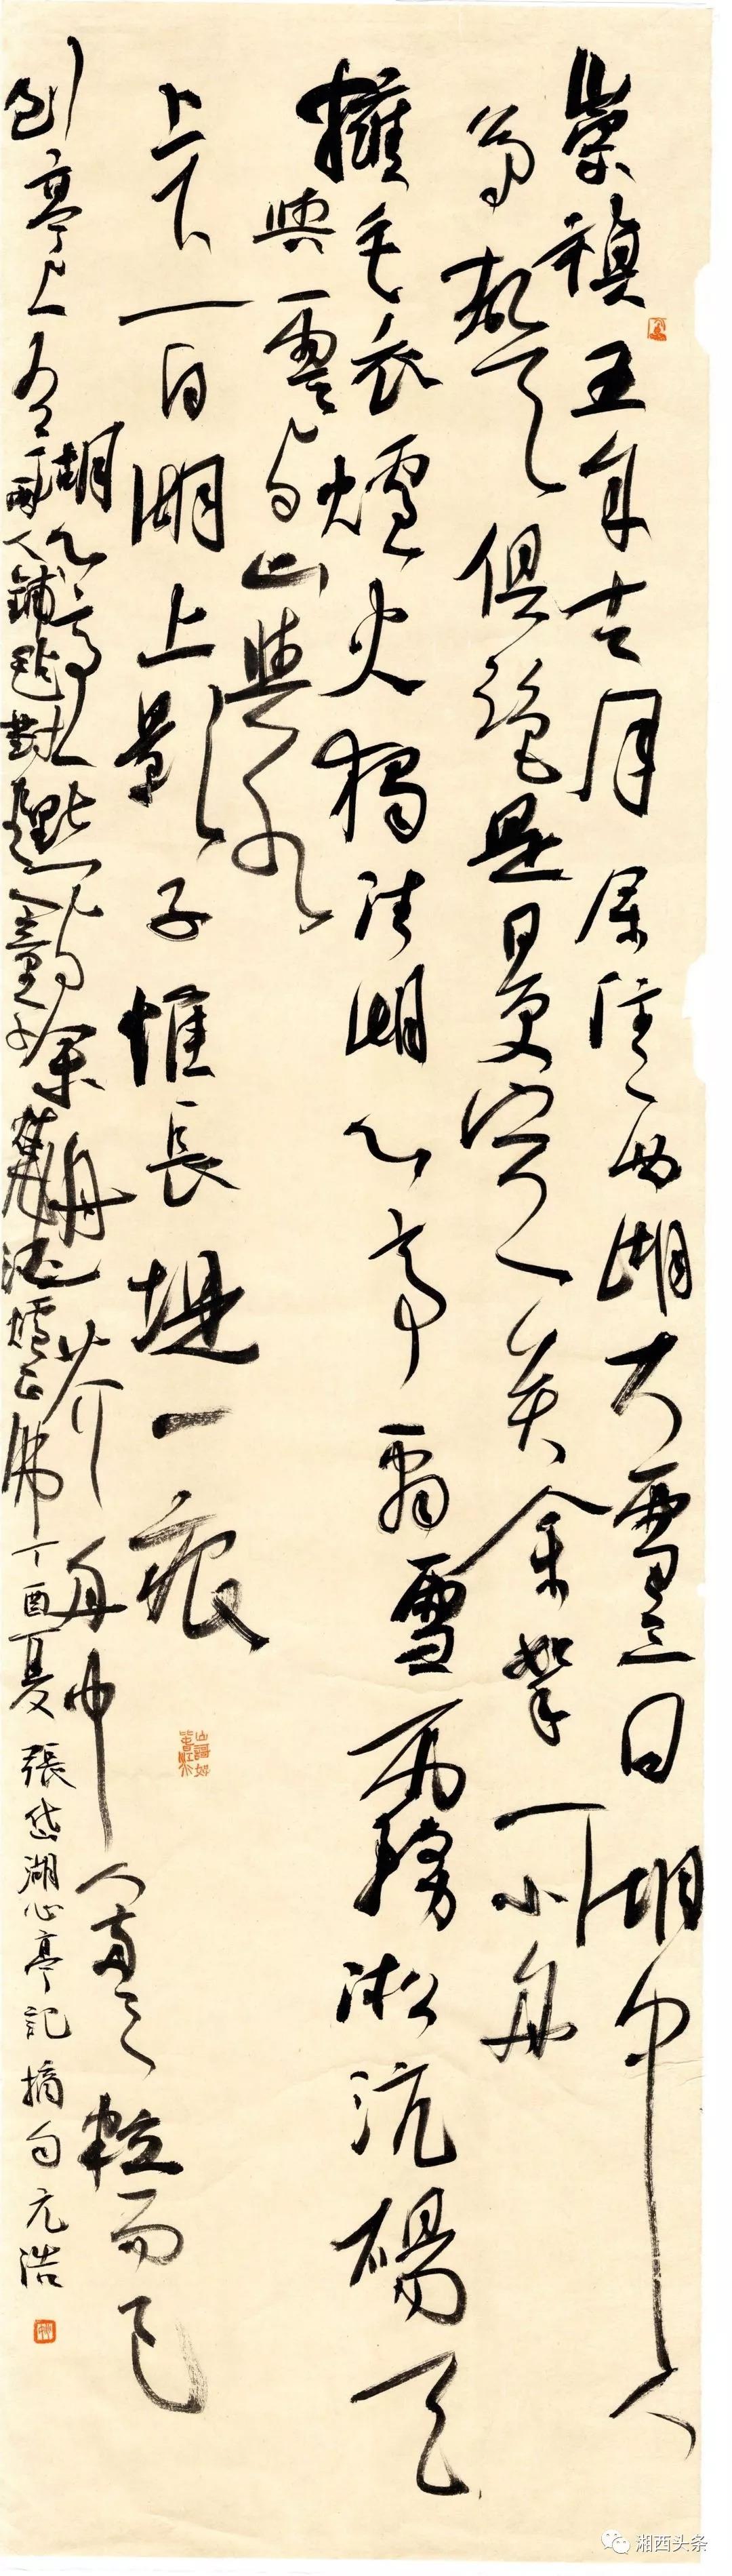 崇禎五年十二月余住西湖大雪三日湖中人
鳥聲俱絕是日更定矣余拏一小舟
擁毛衣爐火獨往湖心亭看雪霧淞沆碭天
與雲与山與水
上下一白湖上影子惟長堤一痕
湖心亭一點与余舟一芥舟中人兩三粒而已
到亭上有兩人鋪氈對坐一童子燒酒爐正沸丁酉夏張岱湖心亭記摘句元浩
湘西头条